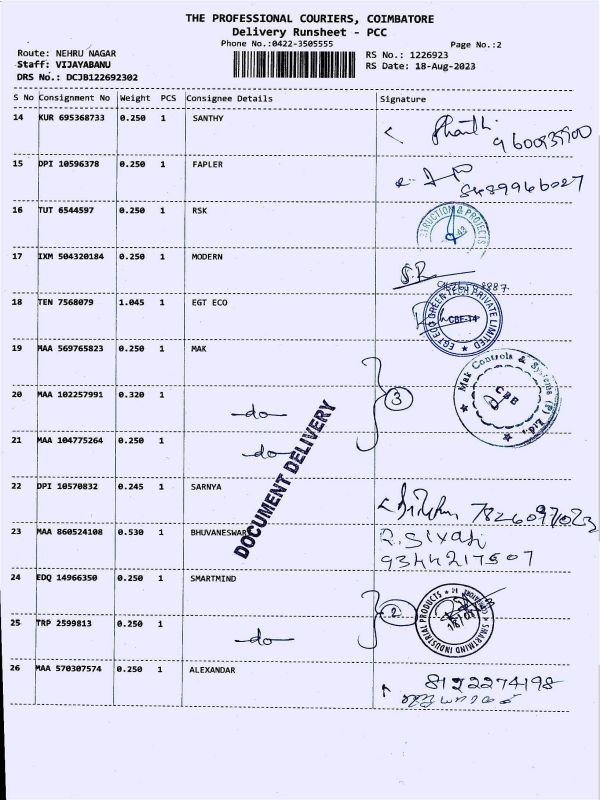 THE PROFESSIONAL COURIERS, COIMBATORE
Delivery Runsheet - PCC
Phone No.:0422-3505555
Page No.:2
Route: NEHRU NAGAR
RS No.: 1226923
Staff: VIJAYABANU
RS Date: 18-Aug-2023
DRS No.: DCJB122692302
S No Consignment No Weight PCS Consignee Details Signature
14 KUR 695368733 0.250 1 SANTHY
15 DPI 10596378 0.250 1 FAPLER
8489966027
16 TUT 6544597 0.250 1 RSK
& PROJECTS
17 IXM 504320184 0.250 1 MODERN
S.R
18 TEN 7568079 1.045 1 EGT ECO
EGT ECO GREEN TECH PRIVATE LIMITED
CBE-14
19 MAA 569765823 0.250 1 MAK
Mak Controls & Systems (P) Ltd.,
CBE
20 MAA 102257991 0.320 1 -do-
3
21 MAA 104775264 0.250 1 -do-
DOCUMENT DELIVERY
22 DPI 10570832 0.245 1 SARNYA
7826097023
23 MAA 860524108 0.530 1 BHUVANESWAR
R. Sivaji
9344217507
24 EDQ 14966350 0.250 1 SMARTMIND
SMARTMIND INDUSTRIAL PRODUCTS
2
25 TRP 2599813 0.250 1 -do-
26 MAA 570307574 0.250 1 ALEXANDAR
8122274198